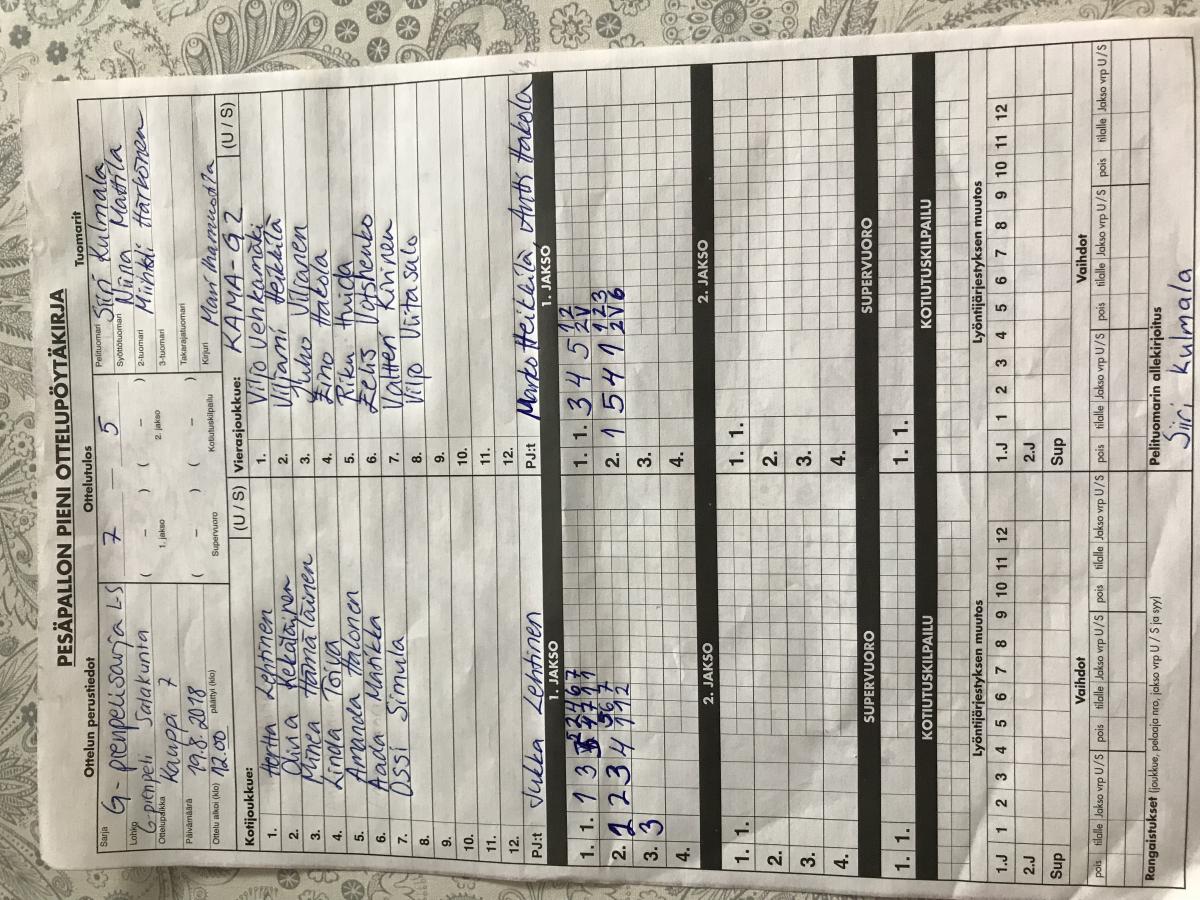 PESÄPALLON PIENI OTTELUPÖYTÄKIRJA
Ottelun perustiedot
Ottelutulos
Tuomarit
Sarja G-pienpelisarja LS
Lohko G-pienpeli Satakunta
Ottelupaikka Kauppi 7
Päivämäärä 19.8.2018
Ottelu alkoi (klo) 12.00 päättyi (klo)
7 – 5
( – ) ( – )
1. jakso 2. jakso
( – ) ( – )
Supervuoro Kotiutuskilpailu
Pelituomari Siiri Kulmala
Syöttötuomari Niina Mattila
2-tuomari Miinkki Härkönen
3-tuomari
Takarajatuomari
Kirjuri Mari
Kotijoukkue: (U / S)
1. Hertta Lehtinen
2. Oliva Kekäläinen
3. Minea Hämäläinen
4. Linda Toiva
5. Amanda Halonen
6. Aada Marikka
7. Ossi Simula
8.
9.
10.
11.
12.
PJ:t Jukka Lehtinen
Vierasjoukkue: KAMA-G2 (U / S)
1. Viljo Vehkamäki
2. Viljami Heikkilä
3. Juho Viljanen
4. Eino Hakola
5. Riku Hvida
6. Eelis Votshenko
7. Valtteri Kivinen
8. Viljo Viitasalo
9.
10.
11.
12.
PJ:t Marko Heikkilä, Antti Hakola
1. JAKSO
1. 1. 1 3
2. 2 2 3 4
3. 3
4.
1. JAKSO
1. 1. 3 4 5
2. 1 5 4 1
3.
4.
2. JAKSO
1. 1.
2.
3.
4.
2. JAKSO
1. 1.
2.
3.
4.
SUPERVUORO
1. 1.
SUPERVUORO
1. 1.
KOTIUTUSKILPAILU
KOTIUTUSKILPAILU
Lyöntijärjestyksen muutos
1.J 1 2 3 4 5 6 7 8 9 10 11 12
2.J
Sup
Lyöntijärjestyksen muutos
1.J 1 2 3 4 5 6 7 8 9 10 11 12
2.J
Sup
Vaihdot
pois tilalle Jakso vrp U/S pois tilalle Jakso vrp U/S pois tilalle Jakso vrp U/S
Vaihdot
pois tilalle Jakso vrp U/S pois tilalle Jakso vrp U/S pois tilalle Jakso vrp U/S
Rangaistukset (joukkue, pelaaja nro, jakso vrp U / S ja syy)
Pelituomarin allekirjoitus
Siiri Kulmala